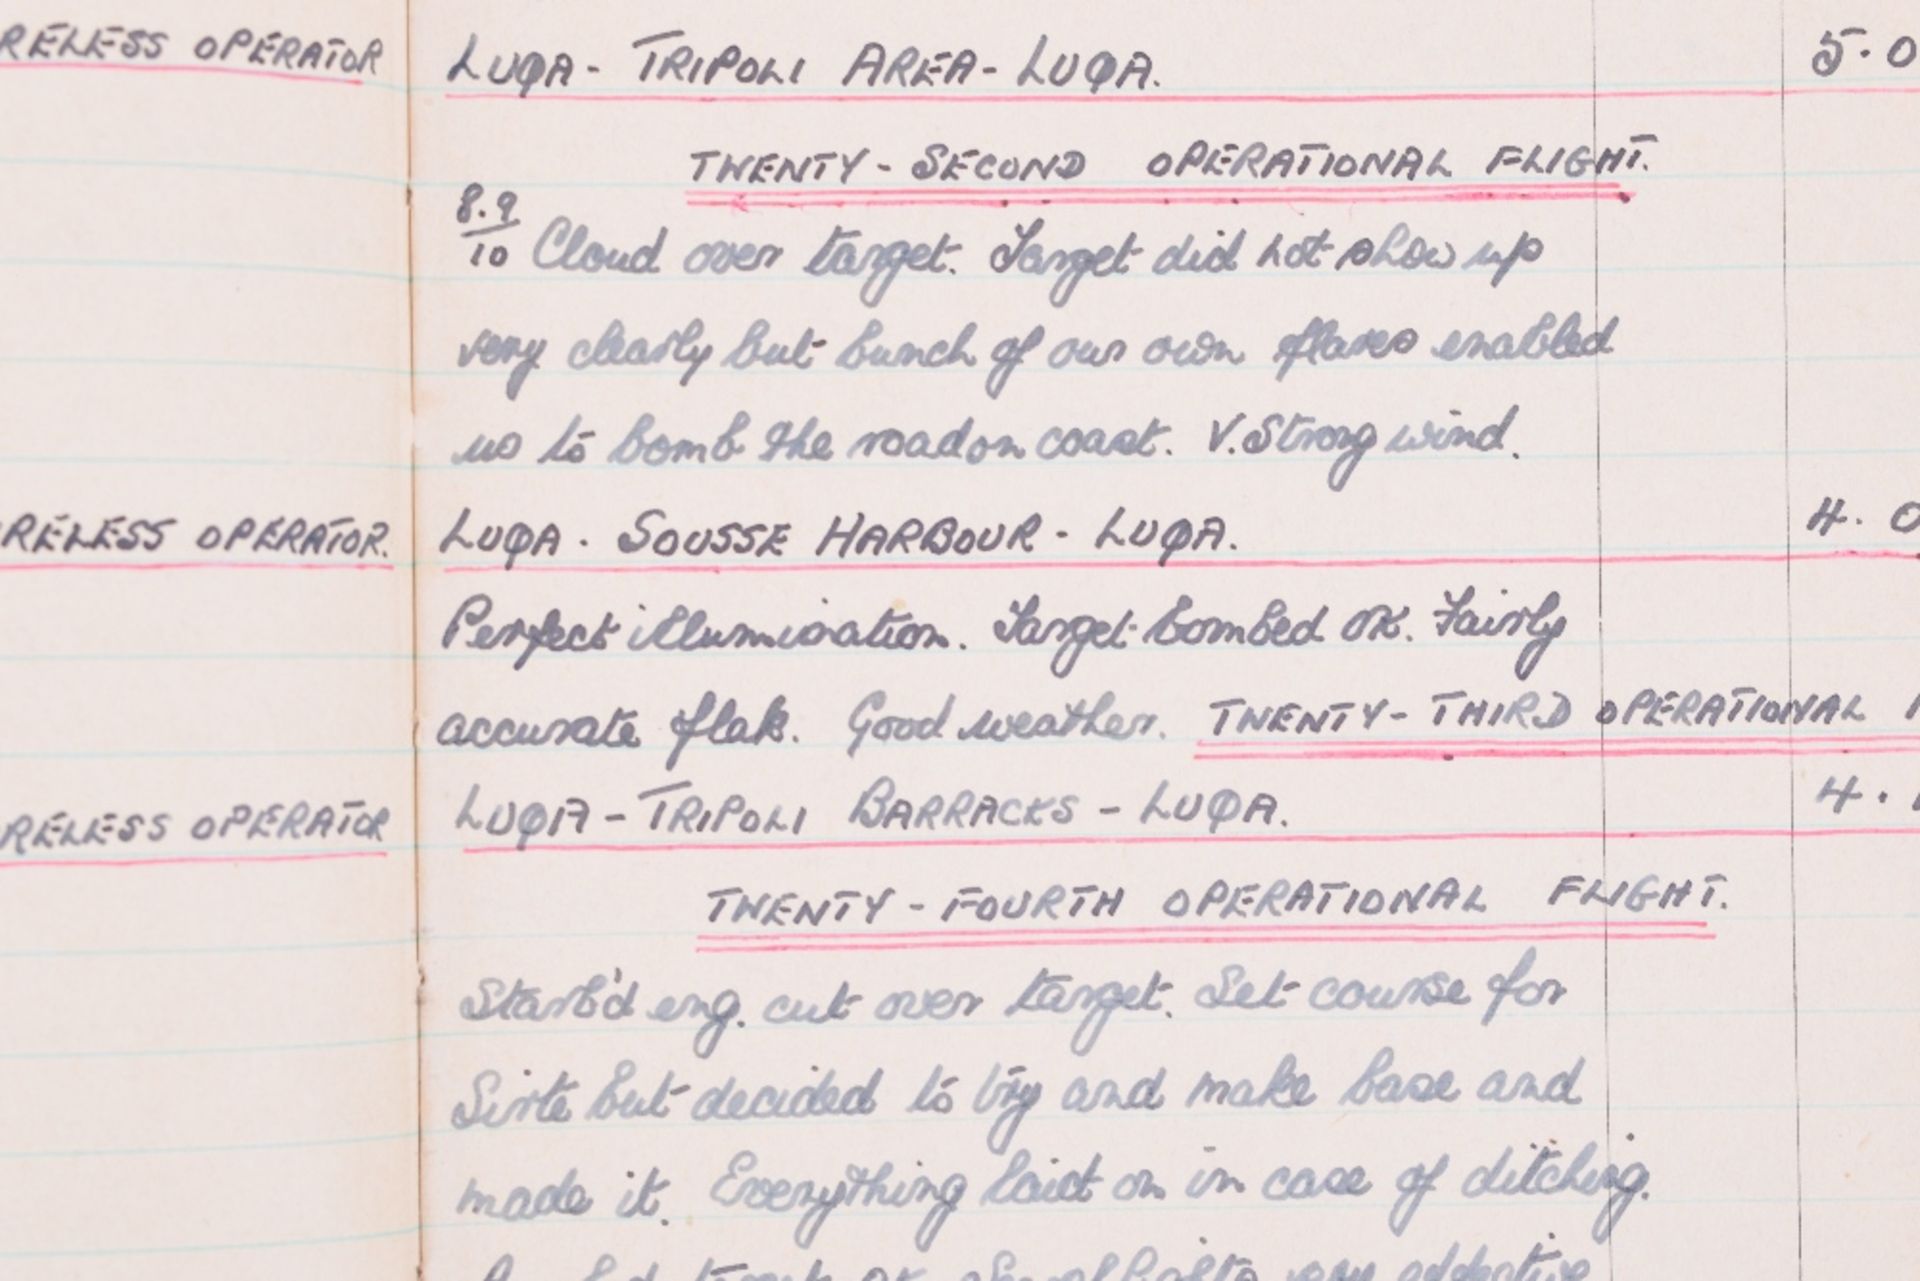 RELESS OPERATOR LUQA - TRIPOLI AREA - LUQA. 5.0
TWENTY-SECOND OPERATIONAL FLIGHT.
8.9/10 Cloud over target. Target did not show up
very clearly but bunch of our own flares enabled
us to bomb the road on coast. V. Strong wind.
RELESS OPERATOR. LUQA. SOUSSE HARBOUR - LUQA. 4.0
Perfect illumination. Target bombed OK. Fairly
accurate flak. Good weather. TWENTY-THIRD OPERATIONAL
RELESS OPERATOR LUQA - TRIPOLI BARRACKS - LUQA. 4.
TWENTY-FOURTH OPERATIONAL FLIGHT.
Starb'd eng. cut over target. Set course for
Sirte but decided to try and make base and
made it. Everything laid on in case of ditching.